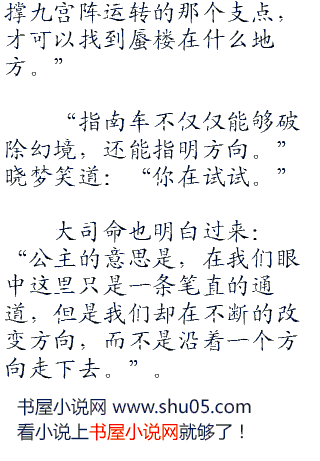 撑九宫阵运转的那个支点，
才可以找到蜃楼在什么地
方。”
“指南车不仅仅能够破
除幻境，还能指明方向。”
晓梦笑道：“你在试试。”
大司命也明白过来：
“公主的意思是，在我们眼
中这里只是一条笔直的通
道，但是我们却在不断的改
变方向，而不是沿着一个方
向走下去。”。
书屋小说网 www.shu05.com
看小说上书屋小说网就够了！